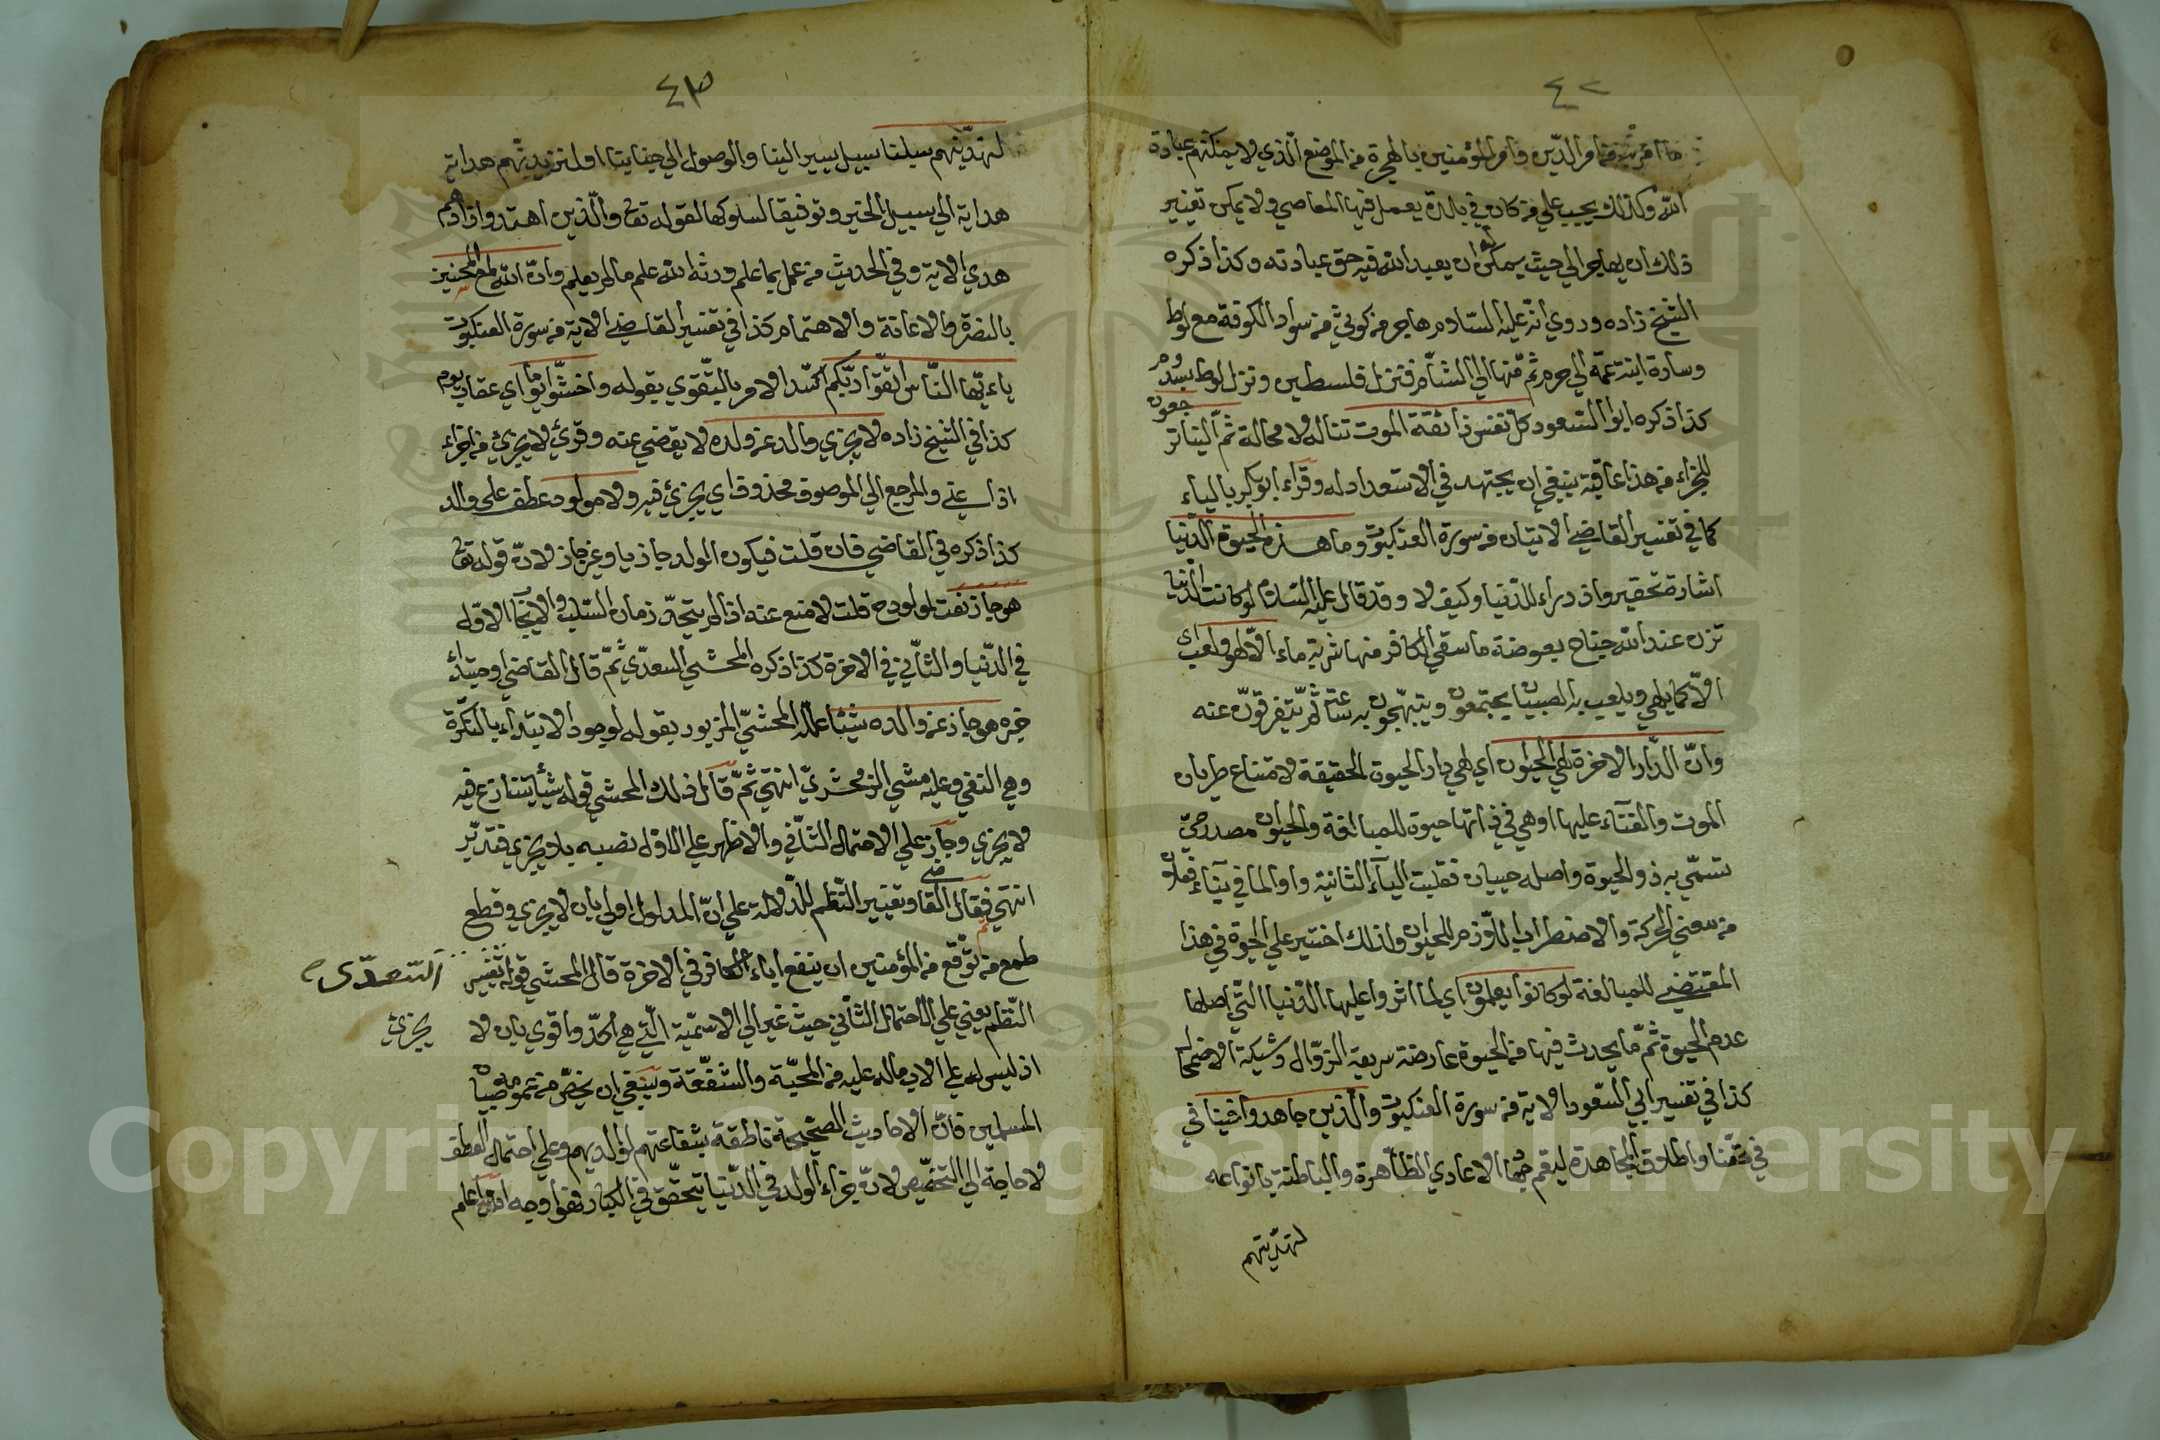 ٤٢
من امر الدين وامر المؤمنين بالهجرة من الموضع الذي لا يمكنهم عبادة
الله وكذلك يجب علي من كان في بلدة يعمل فيها المعاصي ولا يمكن تغيير
ذلك ان يهاجر الي حيث يمكن له ان يعبد الله فيه حق عبادته وكذا ذكره
الشيخ زاده وروي انه عليه السلام هاجر من كوثي من سواد الكوفة مع لوط
وسارة ابنة عمه الي حرم ثم منها الي الشام فنزل فلسطين ونزل لوط بسدوم
كذا ذكره ابو السعود كل نفس ذائقة الموت تناله لا محالة ثم الينا ترجعون
للجزاء من هذا عاقبته ينبغي ان يجتهد في الاستعداد له وقراء ابو بكر بالياء
كما في تفسير القاضي الايتان من سورة العنكبوت وما هذه الحيوة الدنيا
اشارة تحقير وازدراء للدنيا وكيف لا وقد قال عليه السلام لو كانت الدنيا
تزن عند الله جناح بعوضة ما سقي الكافر منها شربة ماء الا لهو ولعب اي
الا كما يلهي ويلعب به الصبيان يجتمعون ويبتهجون به ساعة ثم يتفرقون عنه
وان الدار الاخرة لهي الحيوان اي لهي دار الحيوة الحقيقة لامتناع طريان
الموت والفناء عليها او هي في ذاتها حيوة للمبالغة والحيوان مصدر حي
تسمي به ذو الحيوة واصله حييان فقلبت الياء الثانية واوا لما في بناء فعلان
من معني الحركة والاضطراب اللازم للحيوان ولذلك اختير علي الحيوة في هذا
المقتضي للمبالغة لو كانوا يعلمون اي لما اثروا عليها الدنيا التي اصلها
عدم الحيوة ثم ما يحدث فيها من الحيوة عارضة سريعة الزوال وشيكة الاضمحلال
كذا في تفسير ابي السعود الاية من سورة العنكبوت والذين جاهدوا فينا في
في حقنا واطلاق المجاهدة ليعم جهاد الاعادي الظاهرة والباطنة بانواعه
لنهدينهم
٤٣
لنهدينهم سبلنا سبيل سير الينا والوصول الي جنابنا او لنزيدنهم هداية
هداية الي سبيل الخير وتوفيقا لسلوكها لقوله تع والذين اهتدوا زادهم
هدي الاية وفي الحديث من عمل بما علم ورثه الله علم ما لم يعلم وان الله لمع المحسنين
بالنصرة والاعانة والاهتمام كذا في تفسير القاضي الاية من سورة العنكبوت
ياءيها الناس اتقوا ربكم اكد الامر بالتقوي بقوله واخشوا يوما اي عقاب يوم
كذا في الشيخ زاده لا يجزي والد عن ولده لا يقضي عنه وقرئ لا يجزئ من اجزاء
اذا غني والمرجع الي الموصوف محذوف اي يجزئ فيه ولا مولود عطف علي والد
كذا ذكره في القاضي فان قلت فيكون الولد جازيا وغير جاز لان قوله تع
هو جاز نعت لمولود ح قلت لا منع عنه اذا لم يتحد زمان السلب والايجاب الاول
في الدنيا والثاني في الاخرة كذا ذكره المحشي السعدي ثم قال القاضي او مبتداء
خبره هو جاز عن والده شيئا علله المحشي المزبور بقوله لوجود الابتداء بالنكرة
وهي النفي وعليه مشي الزمخشري انتهي ثم قال ذلك المحشي قوله شيئا يتنازع فيه
لا يجزي وجاز علي الاحتمال الثاني والاظهر علي الاول نصبه بلا يجزي فتدبر
انتهي ثم قال القاضي وتغيير النظم للدلالة علي ان المدلول اولي بان لا يجزي وقطع
طمع من توقع من المؤمنين ان ينفع اباه الكافر في الاخرة قال المحشي قوله تغيير
السعدي
النظم يعني علي الاحتمال الثاني حيث غير الي الاسمية التي هي اكد واقوي بان لا
يجزئ
اذ ليس له علي الاب ماله عليه من المحبة والشفقة وينبغي ان يخص من عمومه صبيان
المسلمين فان الاحاديث الصحيحة ناطقة بشفاعتهم لوالديهم وعلي احتمال العطف
لا حاجة الي التخصيص لان جزاء الولد في الدنيا يتحقق في الكبار فهو اوجه والله اعلم
Copyright © King Saud University